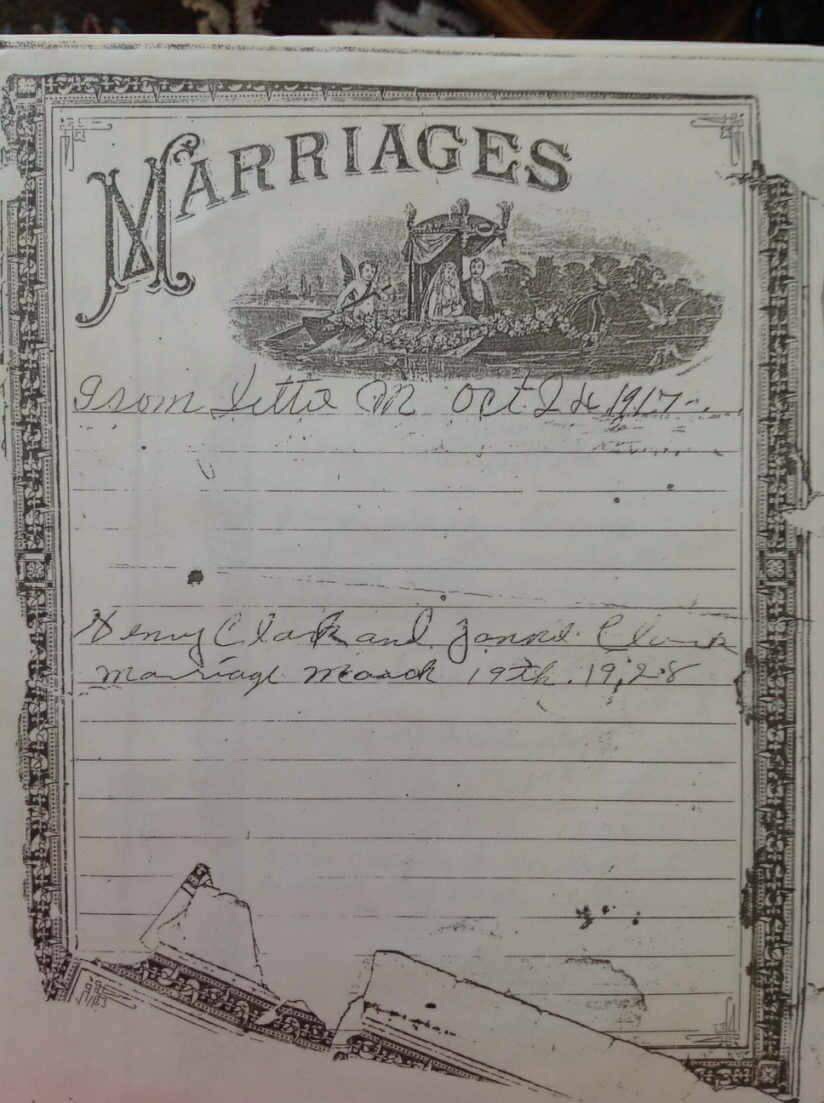 MARRIAGES
From Lettie M Oct 24 1917
Henry Clark and Clark
marriage March 19th. 1928